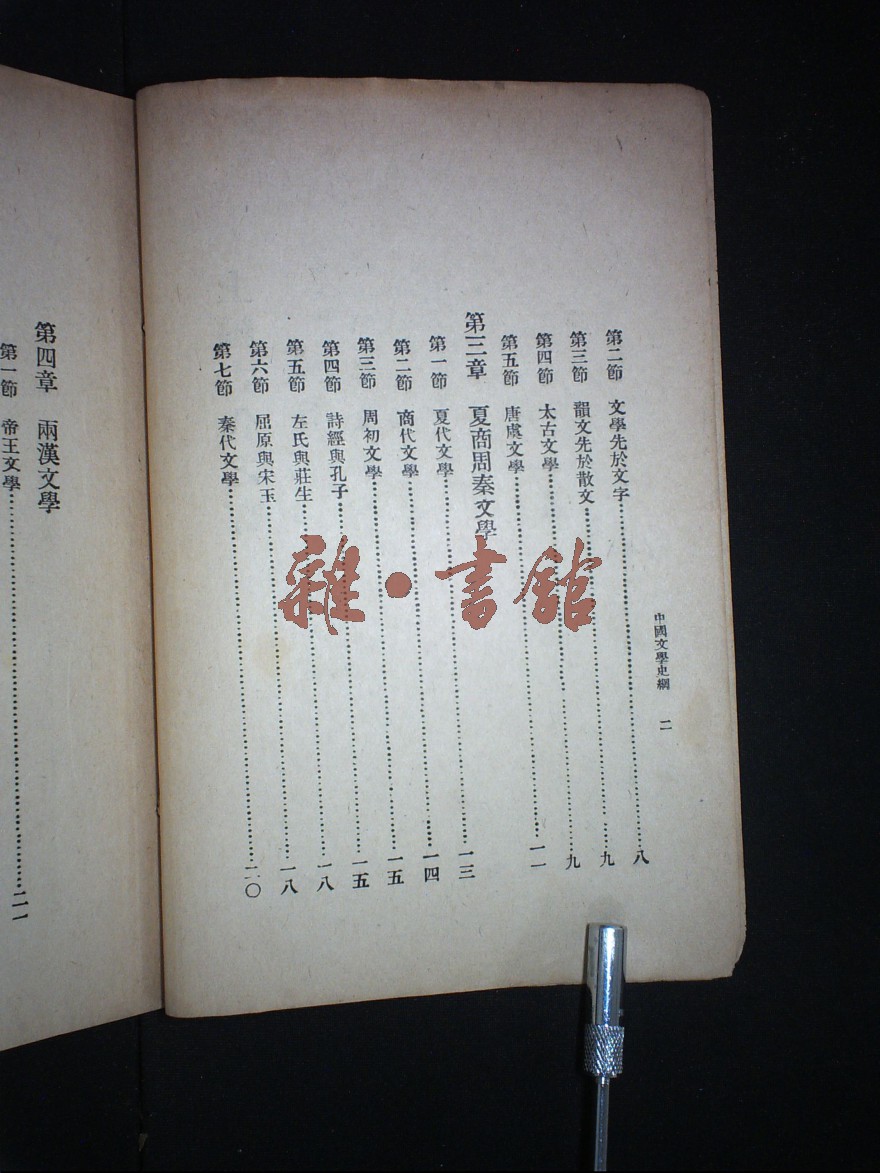 中國文學史綱 二
第二節 文學先於文字……八
第三節 韻文先於散文……九
第四節 太古文學……九
第五節 唐虞文學……一一
第三章 夏商周秦文學
第一節 夏代文學……一三
第二節 商代文學……一四
第三節 周初文學……一五
第四節 詩經與孔子……一五
第五節 左氏與莊生……一八
第六節 屈原與宋玉……一八
第七節 秦代文學……二〇
第四章 兩漢文學
第一節 帝王文學……二一
雜·書館